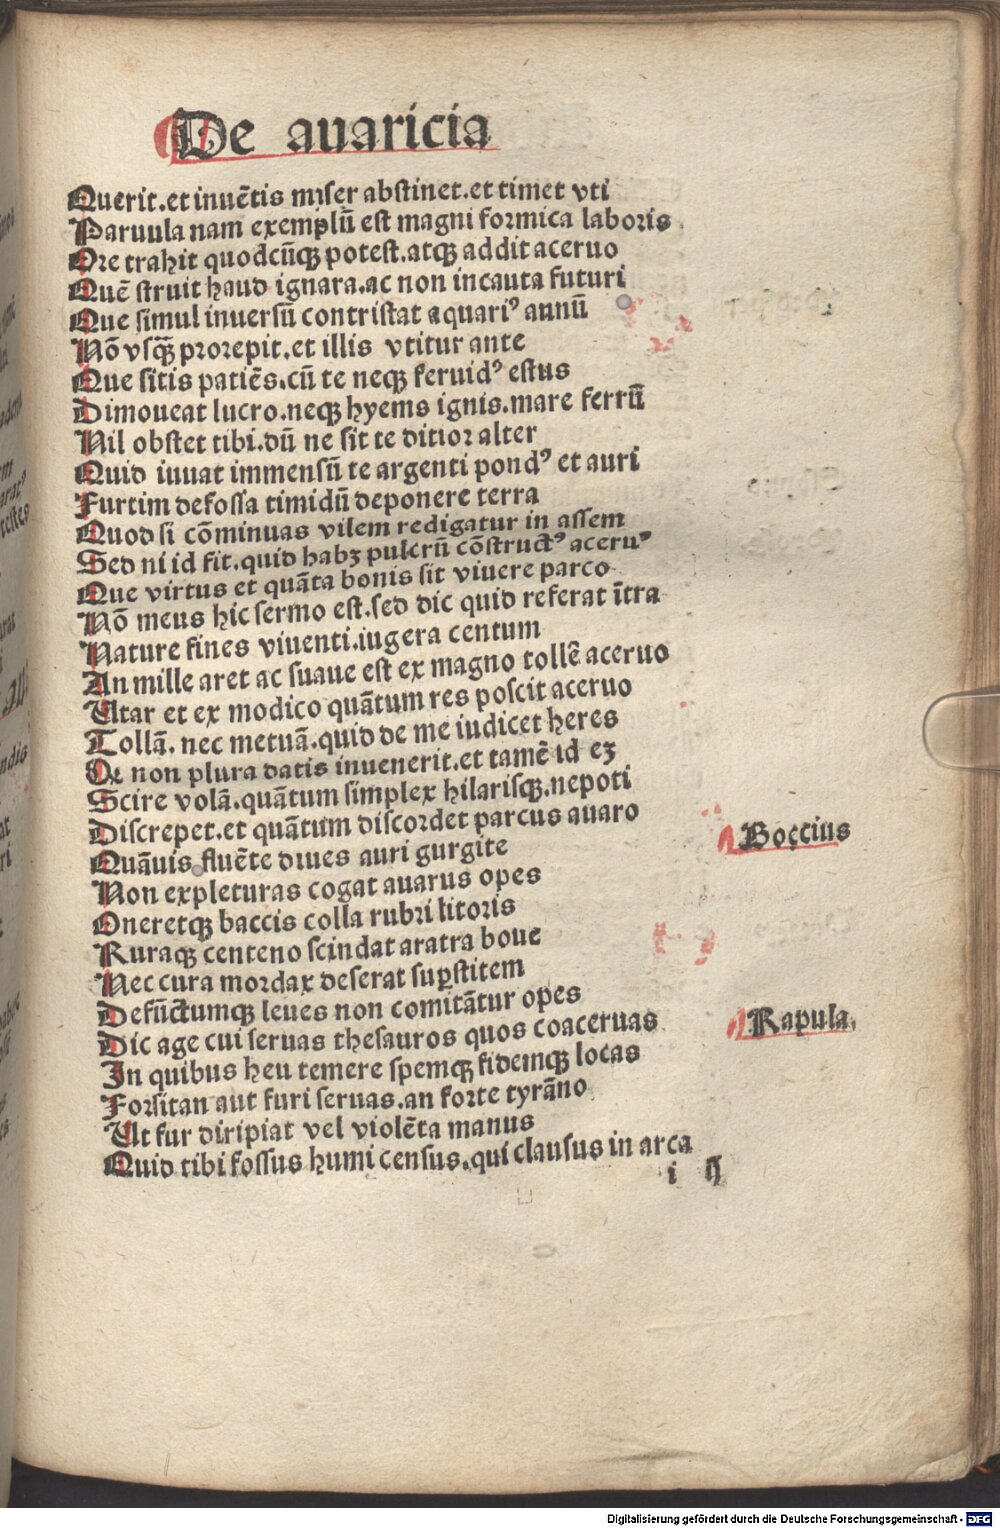 De auaricia
Querit.et inuētis miser abstinet.et timet vti
Paruula nam exemplū est magni formica laboris
Ore trahit quodcūqꝫ potest.atqꝫ addit aceruo
Quē struit haud ignara.ac non incauta futuri
Que simul inuersū contristat aquariꝰ annū
Nō vsqꝫ̄ prorepit.et illis vtitur ante
Que sitis patiēs.cū te neqꝫ feruidꝰ estus
Dimoueat lucro.neqꝫ hyems ignis.mare ferrū
Nil obstet tibi.dū ne sit te ditior alter
Quid iuuat immensū te argenti pondꝰ et auri
Furtim defossa timidū deponere terra
Quod si cōminuas vilem redigatur in assem
Sed ni id fit.quid habꝫ pulcrū cōstructꝰ aceruꝰ
Que virtus et quāta bonis sit viuere paruo
Nō meus hic sermo est.sed dic quid referat ītra
Nature fines viuenti.iugera centum
An mille aret ac suaue est ex magno tollē aceruo
Vtar et ex modico quātum res poscit aceruo
Tollā. nec metuā.quid de me iudicet heres
Qꝫ non plura datis inuenerit.et tamē id eꝫ
Scire volā.quātum simplex hilarisqꝫ.nepoti
Discrepet.et quātum discordet parcus auaro
Boecius
Quāuis fluēte diues auri gurgite
Non expleturas cogat auarus opes
Oneretqꝫ baccis colla rubri litoris
Ruraqꝫ centeno scindat aratra boue
Nec cura mordax deserat suꝑstitem
Defūctumqꝫ leues non comitātur opes
Rapula.
Dic age cui seruas thesauros quos coaceruas
In quibus heu temere spemqꝫ fidemqꝫ locas
Forsitan aut furi seruas.an forte tyrāno
Vt fur diripiat vel violēta manus
Quid tibi fossus humi census.qui clausus in arca
i ij
Digitalisierung gefördert durch die Deutsche Forschungsgemeinschaft - DFG